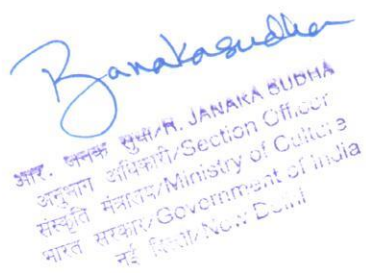 Banakasudha
आर. जनक सुधा/R. JANAKA SUDHA
अनुभाग अधिकारी/Section Officer
संस्कृति मंत्रालय/Ministry of Culture
भारत सरकार/Government of India
नई दिल्ली/New Delhi